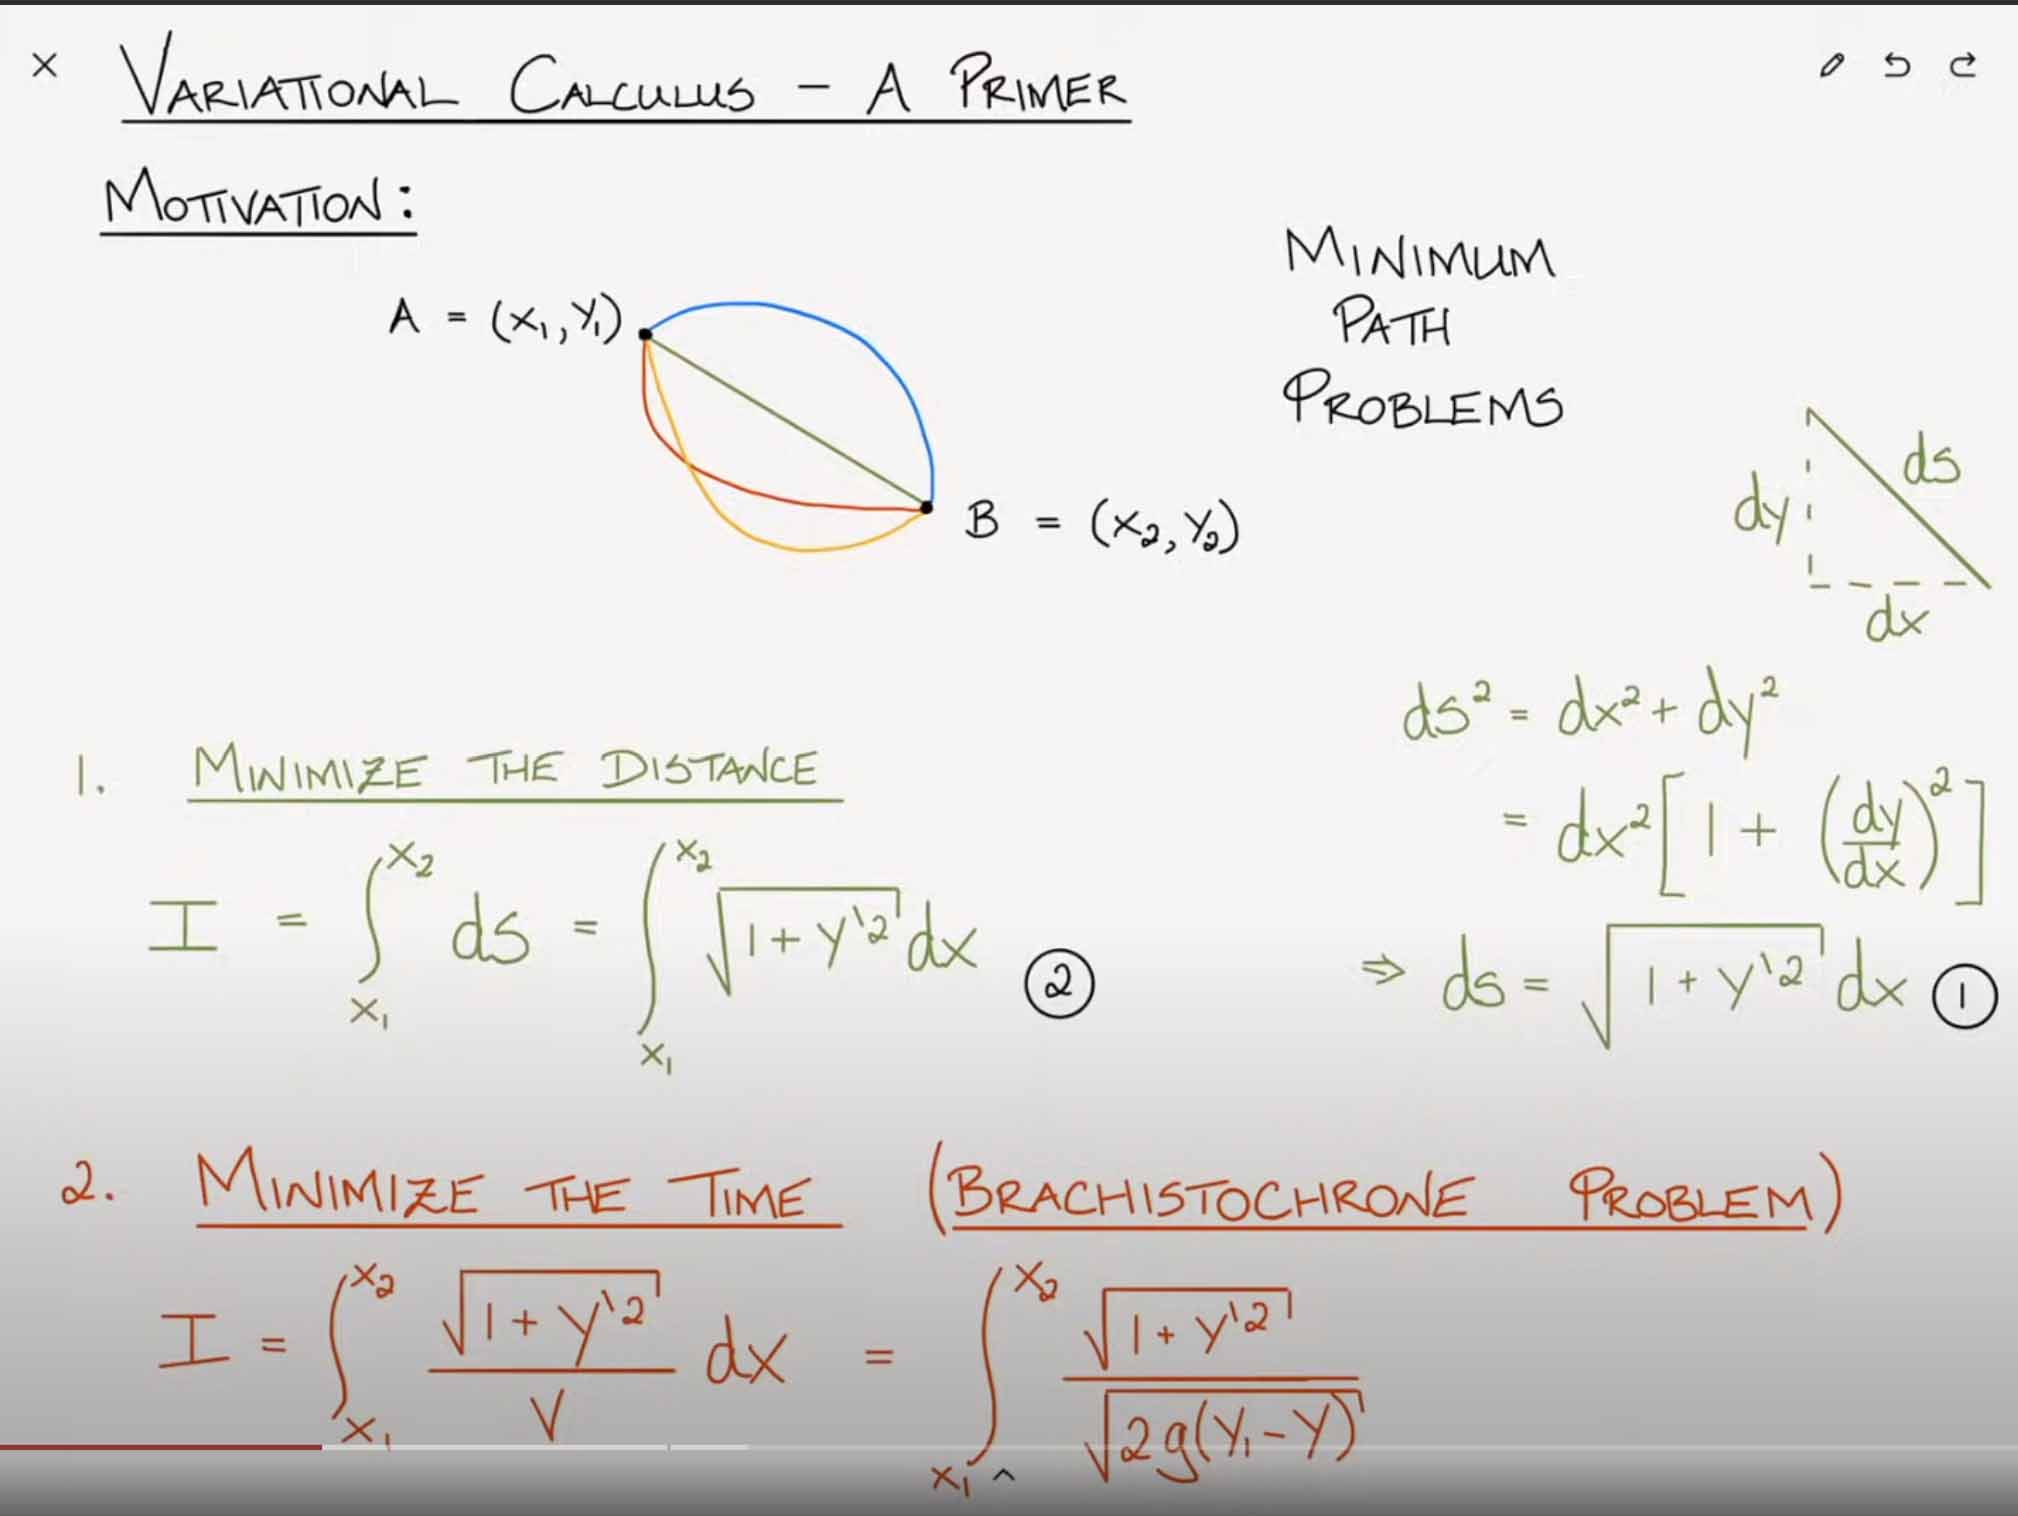 VARIATIONAL CALCULUS – A PRIMER
MOTIVATION:
MINIMUM
PATH
PROBLEMS
A = (x₁, y₁)
B = (x₂, y₂)
ds
dy
dx
ds² = dx² + dy²
= dx² [1 + (dy/dx)²]
⇒ ds = √(1 + y'²) dx ①
1. MINIMIZE THE DISTANCE
I = ∫_{x₁}^{x₂} ds = ∫_{x₁}^{x₂} √(1 + y'²) dx ②
2. MINIMIZE THE TIME (BRACHISTOCHRONE PROBLEM)
I = ∫_{x₁}^{x₂} √(1 + y'²) / v dx = ∫_{x₁}^{x₂} √(1 + y'²) / √(2g(y₁ - y))